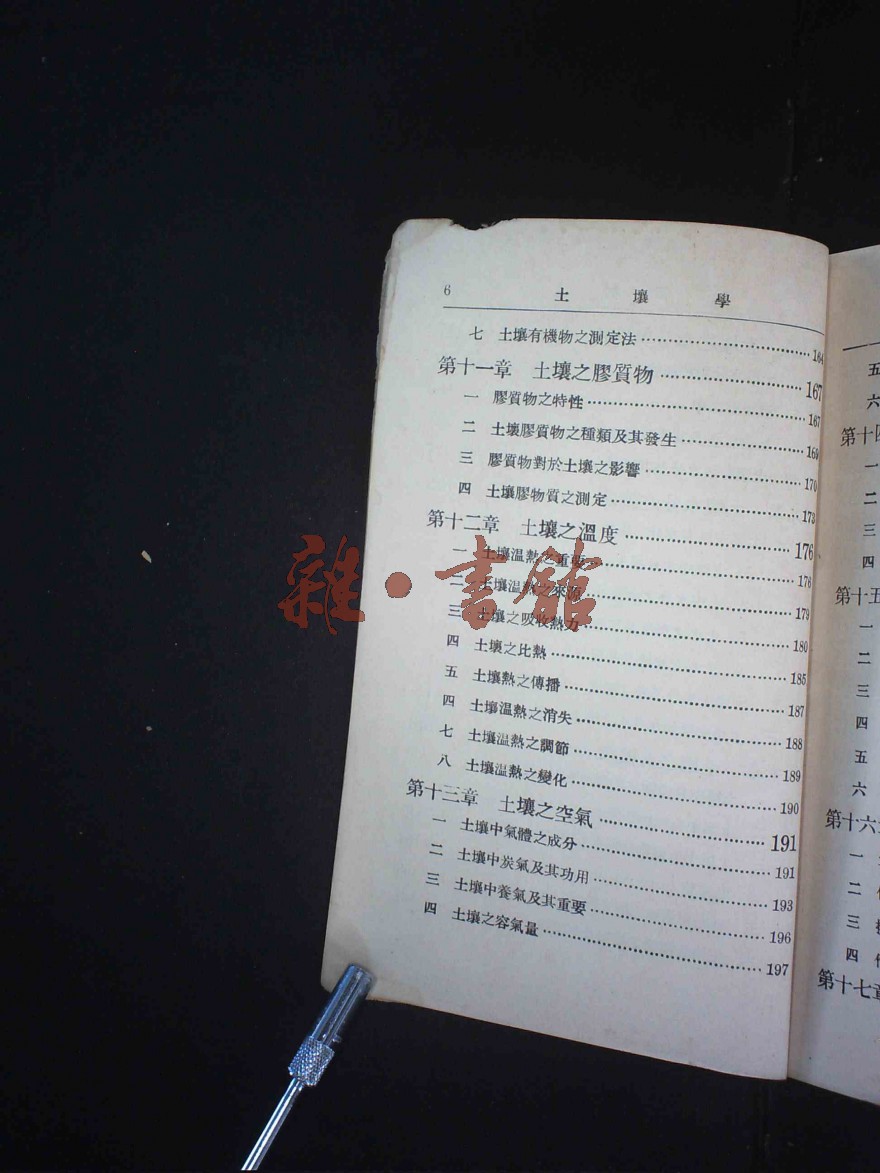 6 土壤學
七 土壤有機物之測定法 164
第十一章 土壤之膠質物 167
一 膠質物之特性 167
二 土壤膠質物之種類及其發生 169
三 膠質物對於土壤之影響 170
四 土壤膠物質之測定 173
第十二章 土壤之溫度 176
一 土壤温熱之重要 176
二 土壤温熱之來源 179
三 土壤之吸收熱力 180
四 土壤之比熱 185
五 土壤熱之傳播 187
四 土壤温熱之消失 188
七 土壤温熱之調節 189
八 土壤温熱之變化 190
第十三章 土壤之空氣 191
一 土壤中氣體之成分 191
二 土壤中炭氣及其功用 193
三 土壤中養氣及其重要 196
四 土壤之容氣量 197
雜·書館
五
六
第十四
一
二
三
四
第十五
一
二
三
四
五
六
第十六
一
二
三
四
第十七章